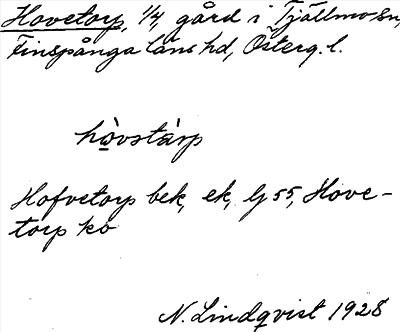 Hovetorp, 1/4 gård i Tjällmo sn,
Finspånga läns hd, Österg. l.
hòvstàrp
Hofvetorp bek, ek, Gj 55, Hove-
torp ko
N. Lindqvist 1928